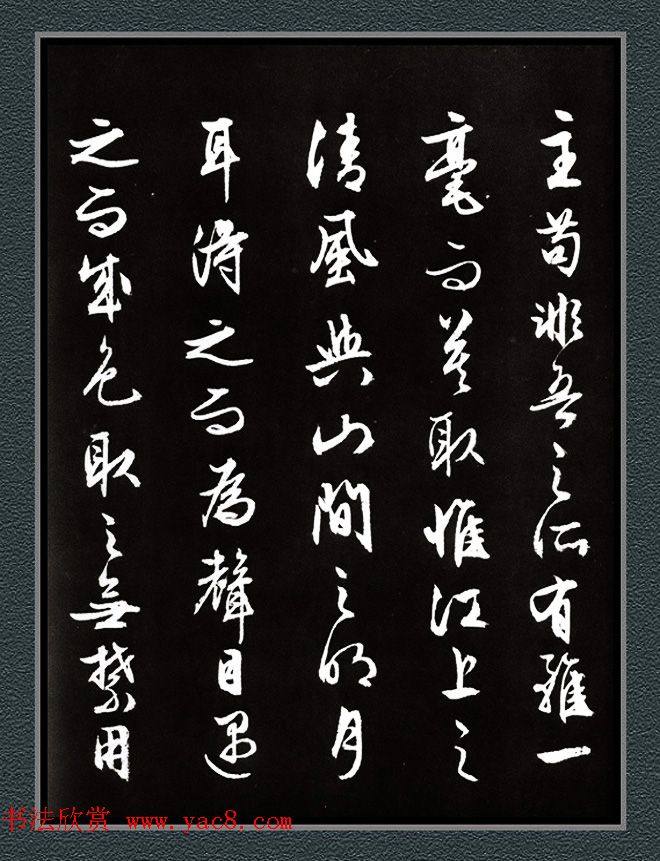 主苟非吾之所有雖一
毫而莫取惟江上之
清風與山間之明月
耳得之而為聲目遇
之而成色取之無禁用
书法欣赏 www.yac8.com